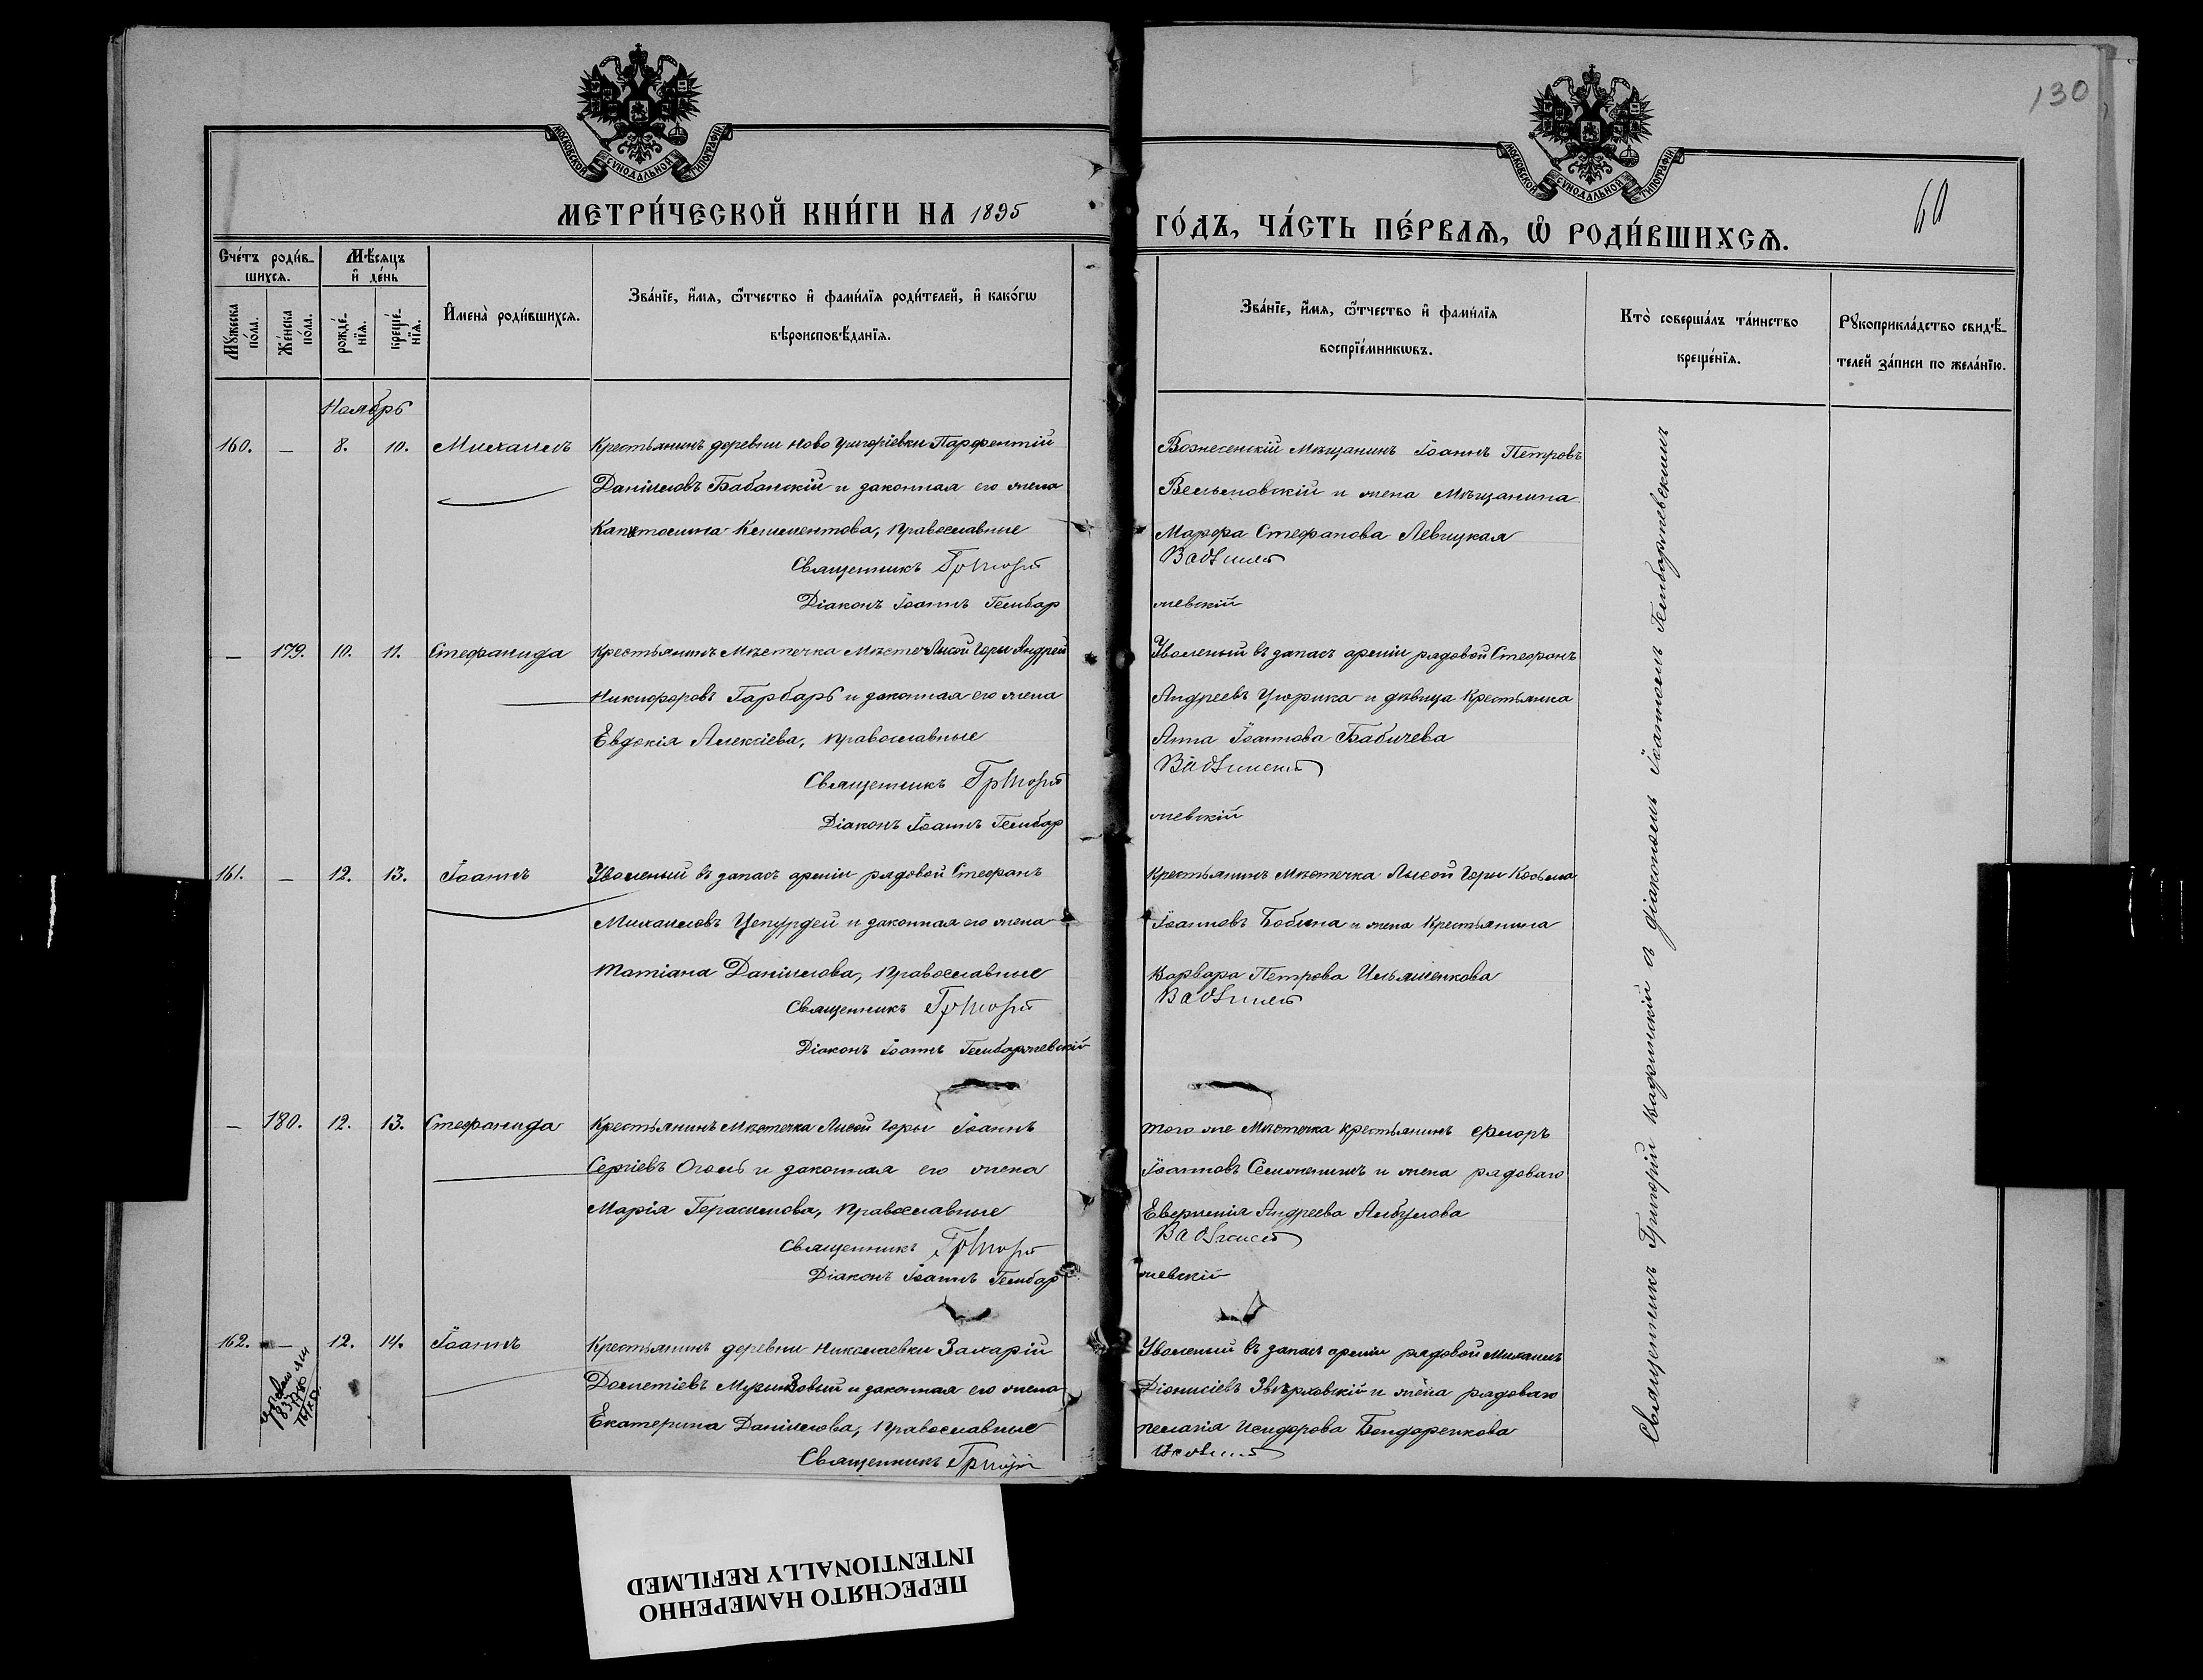 130
60
МОСКОВСКОЙ СѴНОДАЛЬНОЙ ТИПОГРАФІИ
МОСКОВСКОЙ СѴНОДАЛЬНОЙ ТИПОГРАФІИ
МЕТРИ́ЧЕСКОЙ КНИ́ГИ НА 1895
ГО́ДЪ, ЧА́СТЬ ПЕ́РВАѦ, Ѽ РОДИ́ВШИХСѦ.
Сче́тъ роди́в-
шихсѧ.
Мꙋ́жеска по́ла.
Же́нска по́ла.
Мѣ́сѧцъ и҆ де́нь
рожде́-
нїѧ.
креще́-
нїѧ.
И҆мена̀ роди́вшихсѧ.
Зва́нїе, и҆́мѧ, ѻ҆́тчество и҆ фами́лїѧ роди́телей, и҆ како́гѡ
вѣроисповѣ́данїѧ.
Зва́нїе, и҆́мѧ, ѻ҆́тчество и҆ фами́лїѧ
воспрїе́мникѡвъ.
Кто̀ соверша́лъ та́инство
креще́нїѧ.
Рꙋкоприкла́дство свидѣ́-
телей за́писи по жела́нїю.
Ноябрь
160. — 8. 10. Михаилъ
Крестьянинъ деревни Ново Григоріевки Парфентій
Даніиловъ Бабанскій и законная его жена
Капитолина Климентова, православные
Священникъ Григорій
Діаконъ Іоаннъ Гембар
Вознесенскій мѣщанинъ Іоаннъ Петровъ
Вельмовскій и жена мѣщанина
Марфа Стефанова Левицкая
жевскій
— 179. 10. 11. Стефанида
Крестьянинъ мѣстечка Лысой Горы Андрей
Никифоровъ Гарбарь и законная его жена
Евдокія Алексіева, православные
Священникъ Григорій
Діаконъ Іоаннъ Гембар
Уволеный въ запасъ арміи рядовой Стефанъ
Андреевъ Цюрика и дѣвица крестьянка
Анна Іоаннова Бабичева
жевскій
161. — 12. 13. Іоаннъ
Уволеный въ запасъ арміи рядовой Стефанъ
Михаиловъ Цепурдей и законная его жена
Татіана Даніилова, православные
Священникъ Григорій
Діаконъ Іоаннъ Гембаржевскій
Крестьянинъ мѣстечка Лысой Горы Косьма
Іоанновъ Бобына и жена крестьянина
Варвара Петрова Ильяшенкова
— 180. 12. 13. Стефанида
Крестьянинъ мѣстечка Лысой Горы Іоаннъ
Сергіевъ Оголь и законная его жена
Марія Герасимова, православные
Священникъ Григорій
Діаконъ Іоаннъ Гембар
того же мѣстечка крестьянинъ Флоръ
Іоанновъ и жена рядоваго
Андреева
жевскій
162. — 12. 14. Іоаннъ
Крестьянинъ деревни Николаевки Захарій
Дометіевъ и законная его жена
Екатерина Даніилова, православные
Священникъ Григорій
Уволеный въ запасъ арміи рядовой Михаилъ
Діонисіевъ Звѣрховскій и жена рядоваго
Пелагія Исидорова Бондаренкова
Священникъ Григорій Вадзинскій съ діакономъ Іоанномъ Гембаржевскимъ
ПЕРЕСНЯТО НАМЕРЕННО
INTENTIONALLY REFILMED